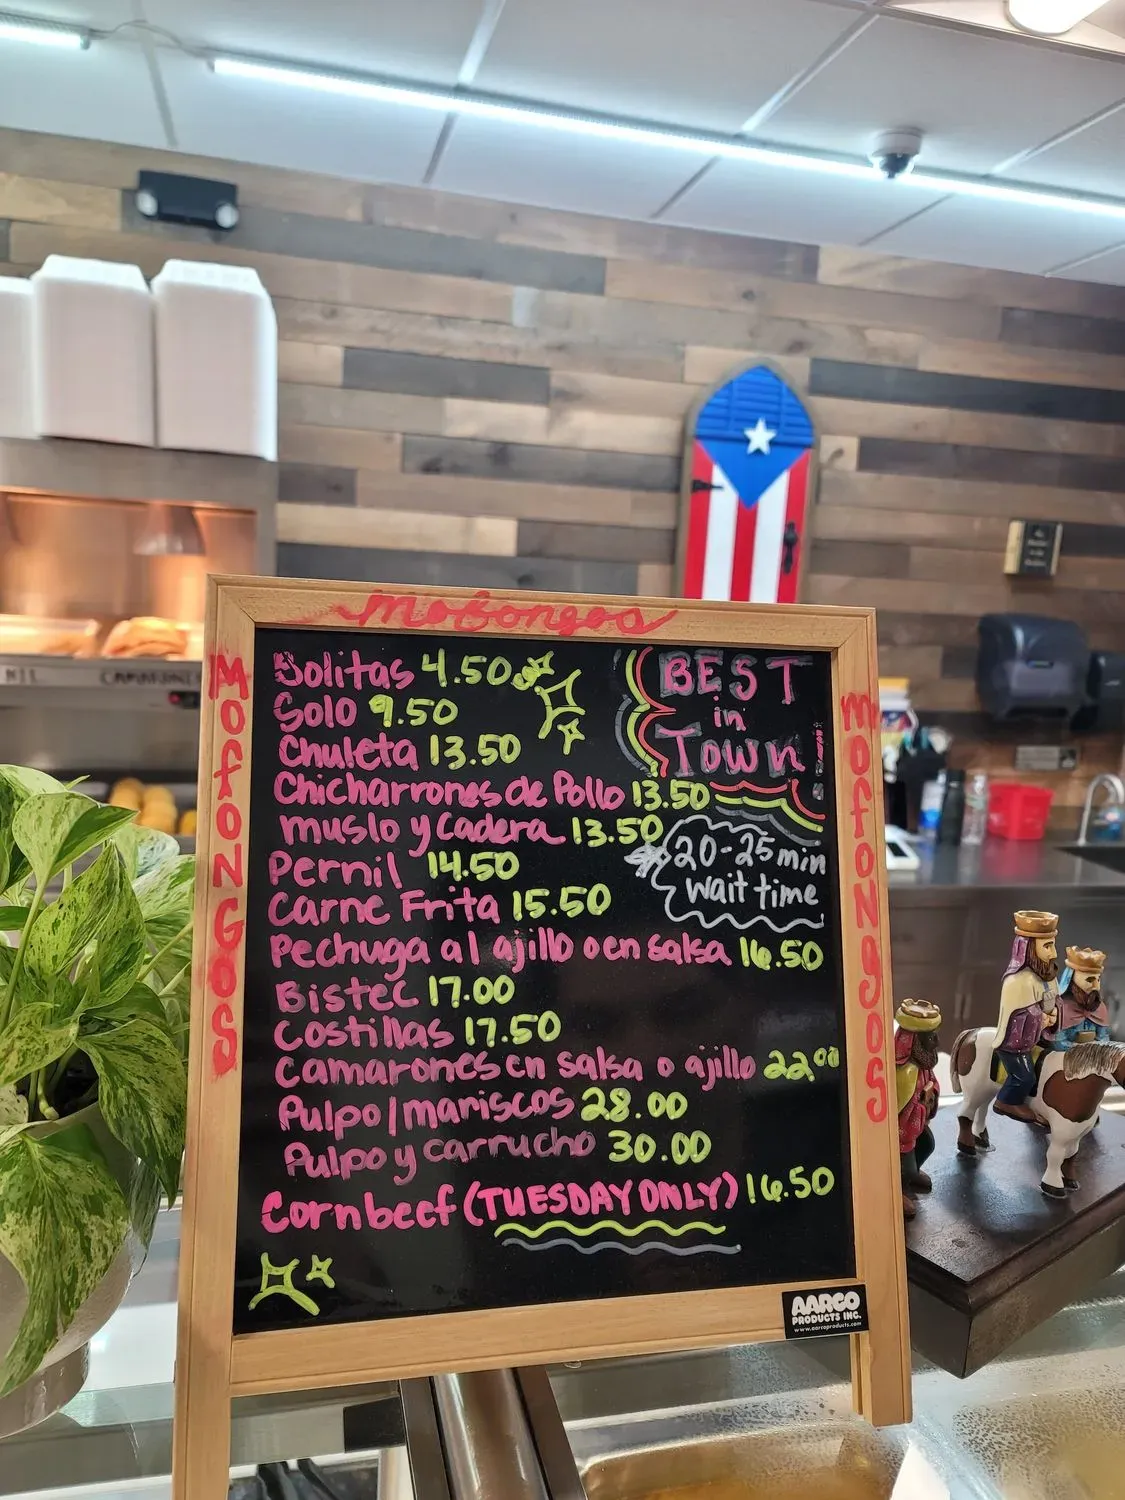 Mofongos
MOFONGOS
Bolitas 4.50
Solo 9.50
Chuleta 13.50
Chicharrones de Pollo 13.50
muslo y Cadera 13.50
Pernil 14.50
Carne Frita 15.50
Pechuga al ajillo o en salsa 16.50
Bistec 17.00
Costillas 17.50
Camarones en salsa o ajillo 22.00
Pulpo/mariscos 28.00
Pulpo y carrucho 30.00
Cornbeef (TUESDAY ONLY) 16.50
BEST
in
Town
20-25 min
wait time
mofongos
AARCO
PRODUCTS INC.
www.aarcoproducts.com